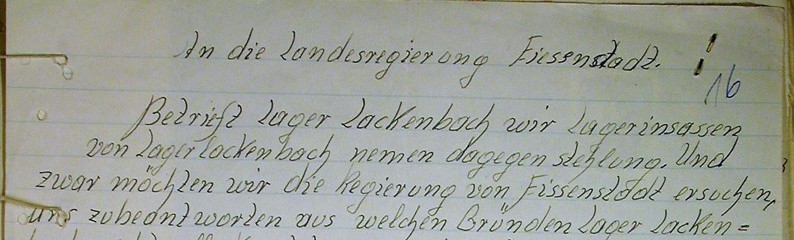 An die Landesregierung Eissenstadt.
16
Betrieft Lager Lackenbach wir Lagerinsassen
von Lagerlackenbach nemen dagegen stehlung. Und
zwar möchten wir die Regierung von Eissenstadt ersuchen,
uns zubeantworten aus welchen Gründen Lager Lacken=